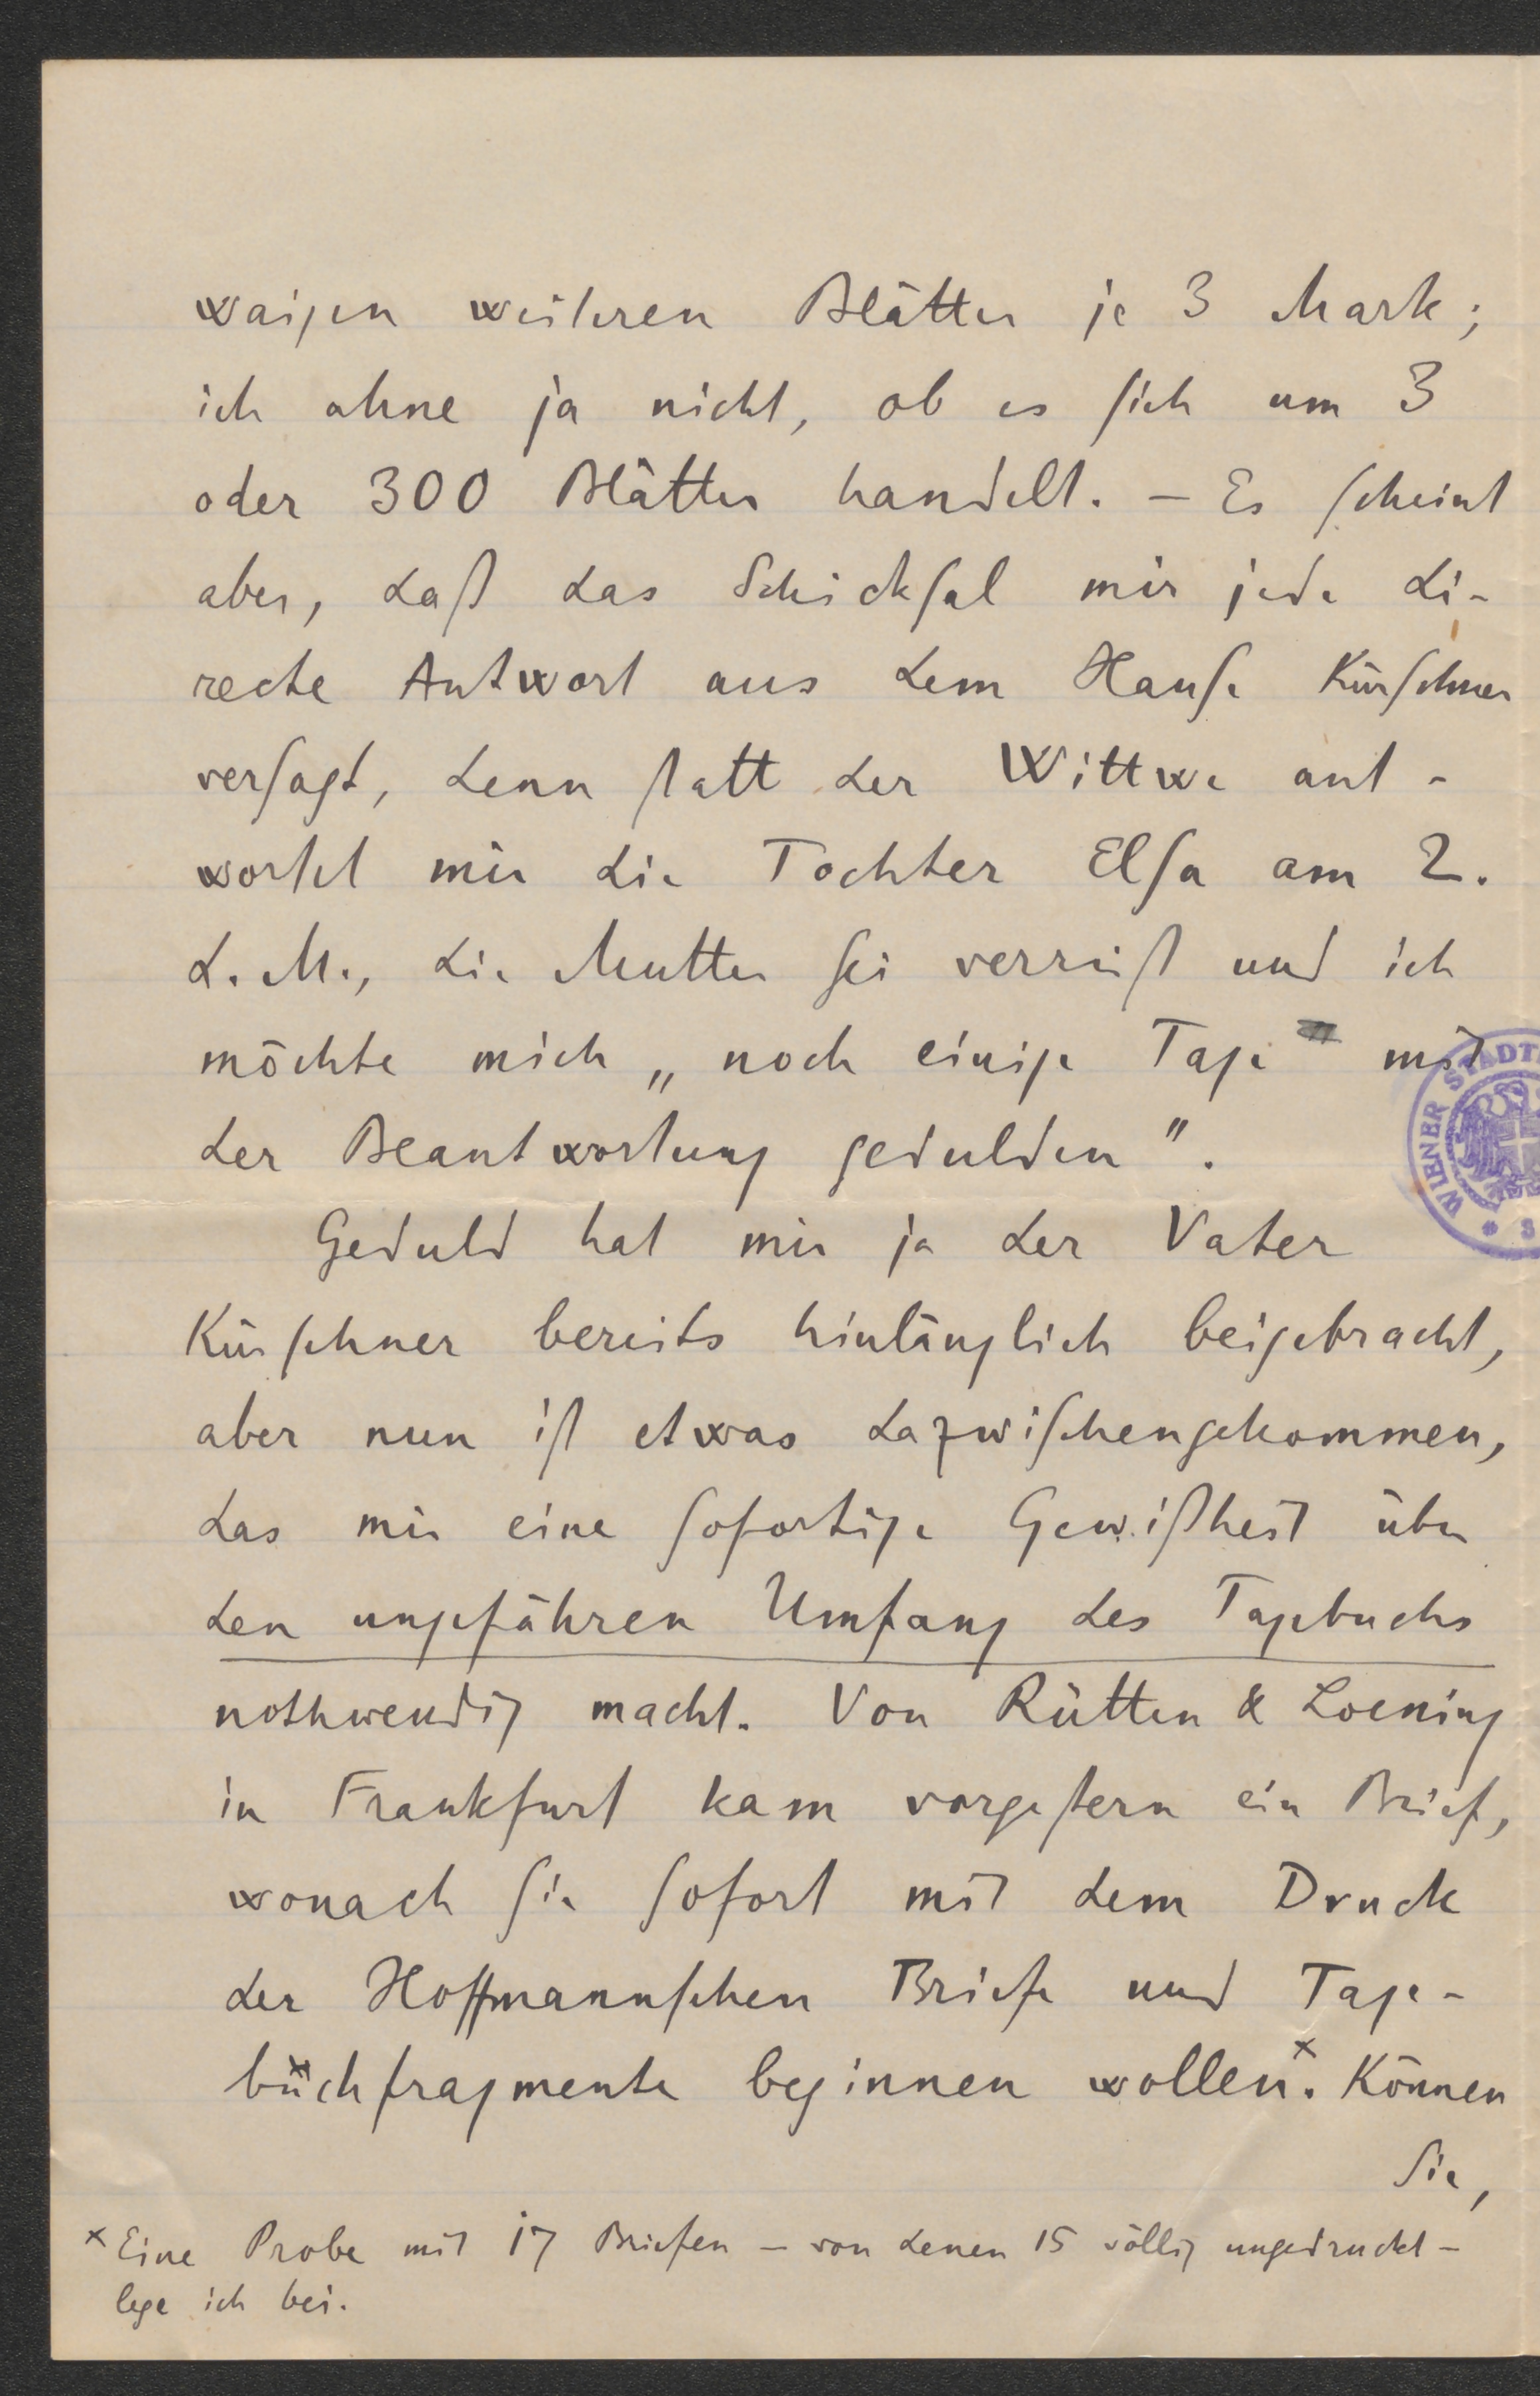 waigen weiteren Blätter je 3 Mark;
ich ahne ja nicht, ob es sich um 3
oder 300 Blätter handelt. – Es scheint
aber, daß das Schicksal mir jede di-
recte Antwort aus dem Hause Kürschner
versagt, denn statt der Wittwe ant-
wortet mir die Tochter Elsa am 2.
d. M., die Mutter sei verreist und ich
möchte mich „noch einige Tage mit
der Beantwortung gedulden".
Geduld hat mir ja der Vater
Kürschner bereits hinlänglich beigebracht,
aber nun ist etwas dazwischengekommen,
das mir eine sofortige Gewißheit über
den ungefähren Umfang des Tagebuchs
nothwendig macht. Von Rütten & Loening
in Frankfurt kam vorgestern ein Brief,
wonach sie sofort mit dem Druck
der Hoffmannschen Briefe und Tage-
buchfragmente beginnen wollen.x Können
Sie,
x Eine Probe mit 17 Briefen – von denen 15 völlig ungedruckt –
lege ich bei.
WIENER STADT